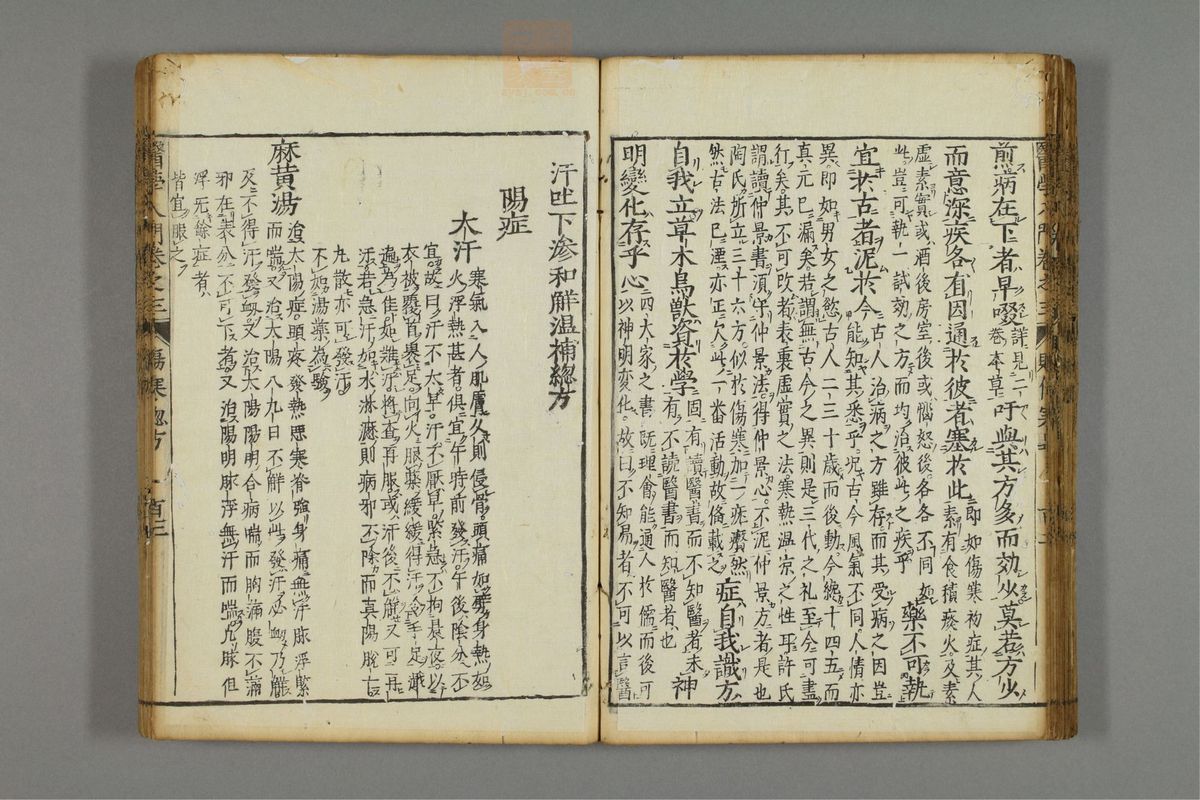 煎病在下者早啜詳見二卷本草吁與其方多而効少莫若方少
而意深疾各有因通於彼者塞於此即如傷寒初症其人素有食積痰火及素
虛素實或酒後房室後或惱怒後各各不同如此豈可執一試効之方而均治彼此之疾乎藥不可執
宜於古者泥於今古人治病之方雖存而其受病之因豈能知其悉乎況古今風氣不同人情亦
異即如男女之慾古人二三十歲而後動今纔十四五而真元已漏矣若謂無古今之異則是三代之礼至今可盡
行矣其不可改者表裏虛實之法寒熱温凉之性耳許氏謂讀仲景書須守仲景法得仲景心不泥仲景方者是也
陶氏所立三十六方似於傷寒加一症癠然然古法已湮亦正人此一番活動故俻載之症自我識方
自我立草木鳥獸資於學固有讀醫書而不知醫者未有不読醫書而知醫者也神
明變化存乎心四大家之書既理會能通人於儒而後可以神明変化故曰不知易者不可以言醫
汗吐下滲和解温補總方
陽症
太汗
寒氣入人肌膚久則侵骨頭痛如身熱如
火浮熱甚者俱宜午時前發汗午後陰分不
宜故曰汗不太早汗不厭早緊急不拘晨夜以
衣被覆首裹足向火服藥緩緩得汗令手足
遍為佳如難汗將查再服或汗後不解又可再
汗若急汗如水淋漉則病邪不除而真陽脫亡
丸散亦可發汗
不如湯藥為驗
麻黃湯
治太陽症頭疼發熱恶寒脊強身痛無汗脉浮緊
而喘又治太陽八九日不解以此發汗必衂乃解
及不得汗發衂又治太陽陽明合病喘而胸滿腹不滿
邪在表分不可下者又治陽明脉浮無汗而喘凡脉但
浮无餘症者
皆宜服之
醫學入門卷之三
傷寒總方
百三